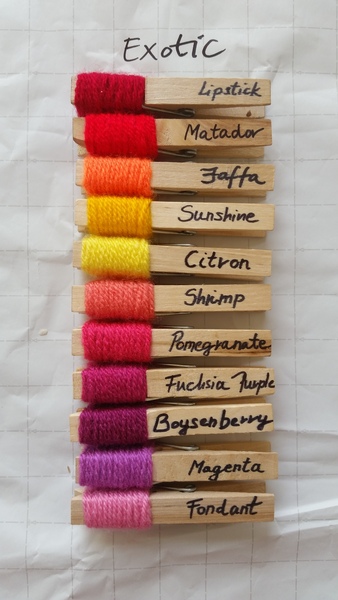 Exotic
Lipstick
Matador
Jaffa
Sunshine
Citron
Shrimp
Pomegranate
Fuchsia Purple
Boysenberry
Magenta
Fondant